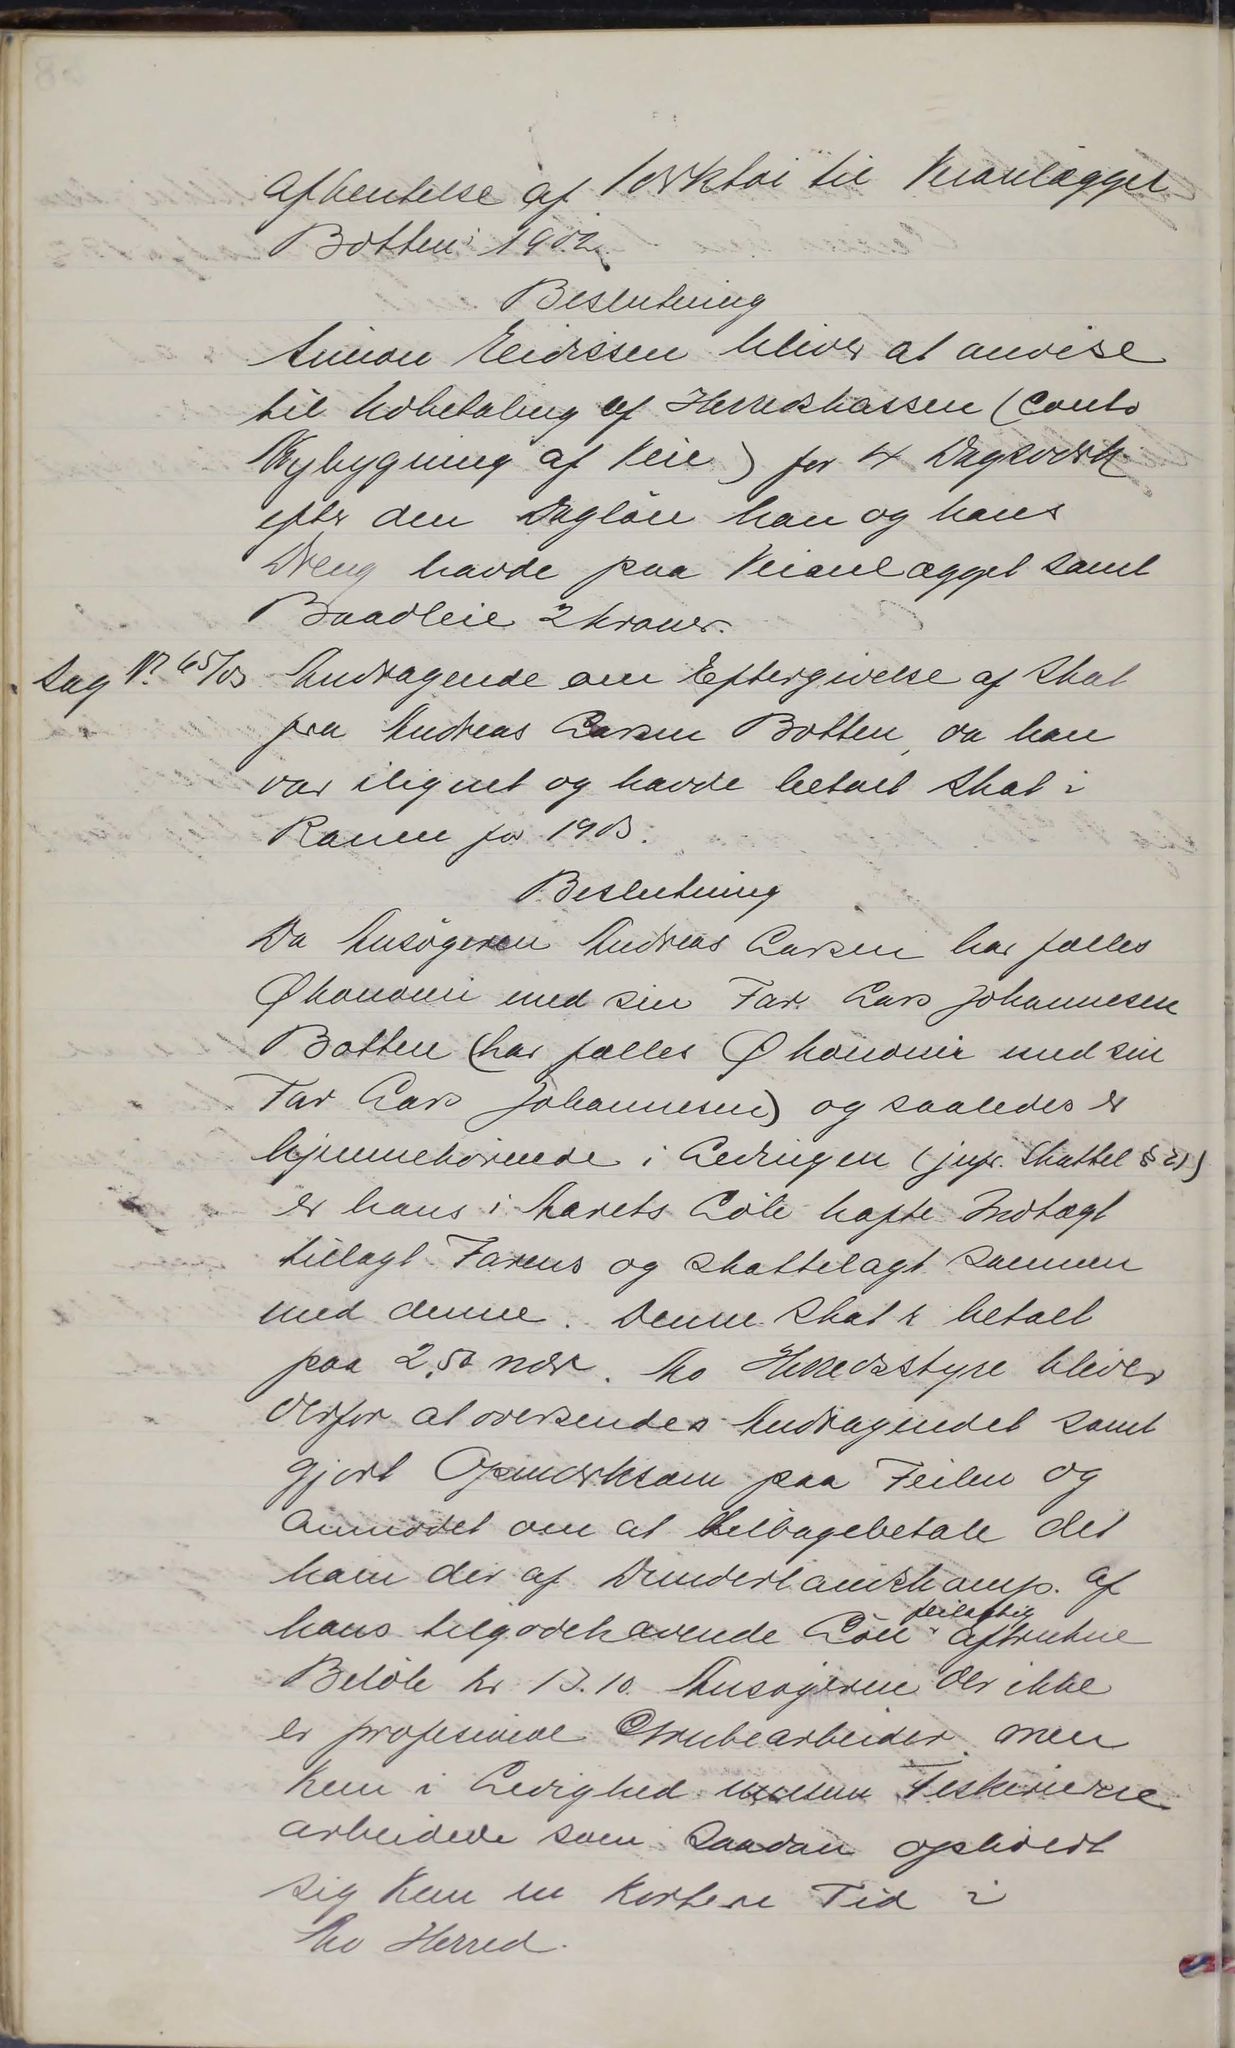 afhentelse af Værktøi til Veianlægget
Botten i 1902.
Beslutning
Simon Eliassen bliver at anvise
til Udbetaling af Herredskassen (Conto
Nybygning af Veie) for 4 Dagsværk
efter den Dagløn han og hans
Dreng havde paa Veianlægget samt
Baadleie 2 kroner.
Sag N? 65/03 Andragende om Eftergivelse af Skat
fra Andreas Larsen Botten, da han
var ilignet og havde betalt Skat i
Ranen for 1903.
Beslutning
Da Ansøgeren Andreas Larsen har fælles
Økonomi med sin Far Lars Johannesen
Botten (har fælles Økonomi med sin
Far Lars Johannesen) og saaledes er
hjemmehørende i Lødingen (jvfr. Skattel § 21)
er hans i Aarets Løb hafte Indtægt
tillagt Farens og skattelagt sammen
med denne. Denne Skat er betalt
paa 2,50 nær. Mo Herredsstyre bliver
derfor at oversendes Andragendet samt
gjort Opmærksom paa Feilen og
anmodet om at tilbagebetale det
ham der af Dunderlandskomp. af
hans tilgodehavende Løn feilagtig aftrukne
Beløb kr 13.10. Ansøgeren der ikke
er profesionel Grubearbeider men
kun i Ledighed Fiskerierne
arbeidede som saadan opholdt
sig kun en kortere Tid i
Mo Herred.